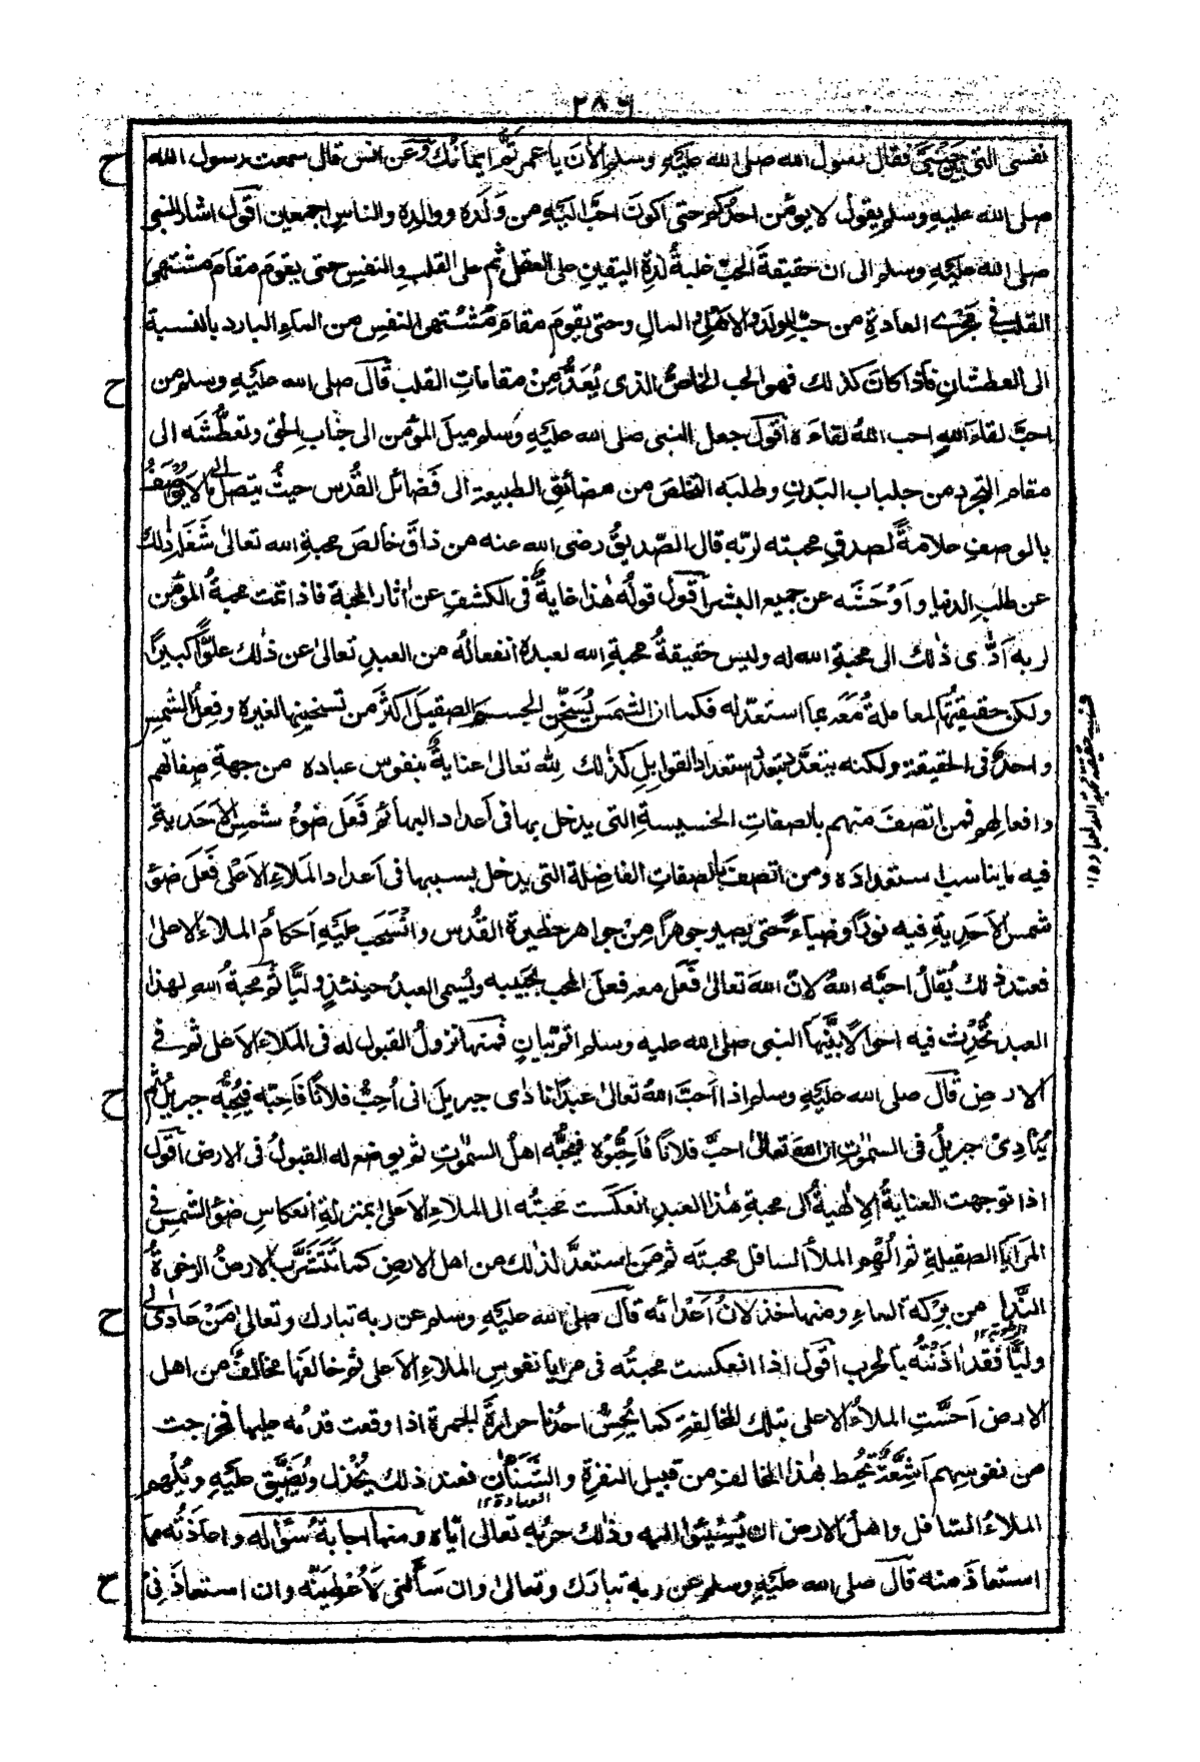 ٢٨٦
نفسى التى بين جنبىّ فقال رسول الله صلى الله عليه وسلم الآن يا عمر تمّ ايمانك وعن انس قال سمعت رسول الله
صلى الله عليه وسلم يقول لا يؤمن احدكم حتى اكون احبّ اليه من ولده ووالده والناس اجمعين اقول اشار النبى
صلى الله عليه وسلم الى ان حقيقة الحب غلبة لذة اليقين على العقل ثم على القلب والنفس حتى يقوم مقام مشتهى
القلب فى مجرى العادة من حب الولد والاهل والمال وحتى يقوم مقام مشتهى النفس من الماء البارد بالنسبة
الى العطشان فاذا كان كذلك فهو الحب الخاص الذى يُعدّ من مقامات القلب قال صلى الله عليه وسلم من
احبّ لقاء الله احب الله لقاءه اقول جعل النبى صلى الله عليه وسلم ميل المؤمن الى جناب الحق وتعطّشه الى
مقام التجرد من جلباب البدن وطلبه التخلص من مضائق الطبيعة الى فضائل القُدس حيث يتصل الى ما لا يوصف
بالوصف علامةً لصدق محبته لربّه قال الصّديق رضى الله عنه من ذاق خالص محبة الله تعالى شغله ذلك
عن طلب الدنيا واوحشه عن جميع البشر اقول قوله هٰذا غايةٌ فى الكشف عن اثار المحبة فاذا تمت محبة المؤمن
لربه ادّى ذٰلك الى محبة الله له وليس حقيقة محبة الله لعبده انفعاله من العبد تعالىٰ عن ذٰلك علوًّا كبيرًا
ولكن حقيقتها المعاملة معه بما استعدّ له فكما ان الشمس تُسخّن الجسم الصقيل اكثر من تسخينها لغيره وفعل الشمس
واحدٌ فى الحقيقة ولكنه يتعدّد بتعدد استعداد القوابل كذٰلك لله تعالى عنايةٌ بنفوس عباده من جهة صفاتهم
وافعالهم فمن اتصف منهم بالصفات الخسيسة التى يدخل بها فى اعداد البهائم فعل ضوء شمس الاحدية
فيه ما يناسب استعداده ومن اتصف بالصفات الفاضلة التى يدخل بسببها فى اعداد الملاء الاعلى فعل ضوء
شمس الاحدية فيه نورًا وضياءً حتى يصير جوهرًا من جواهر حظيرة القُدس وانسحب عليه احكام الملاء الاعلىٰ
فعند ذلك يُقال احبّه الله لان الله تعالىٰ فعل معه فعل المحب بحبيبه ويُسمى العبد حينئذٍ وليًّا ثم محبة الله لهذا
العبد تُحدث فيه احوالًا بيّنها النبى صلى الله عليه وسلم اتمّ بيان فمنها نزول القبول له فى الملاء الاعلى ثم فى
الارض قال صلى الله عليه وسلم اذا احبّ الله تعالىٰ عبدًا نادى جبريل انى اُحبّ فلانًا فاحبّه فيُحبّه جبريل ثم
يُنادى جبريل فى السمٰوٰت ان الله تعالىٰ احبّ فلانًا فاحبّوه فيُحبّه اهل السمٰوٰت ثم يوضع له القبول فى الارض اقول
اذا توجهت العناية الالٰهية الى محبة هٰذا العبد انعكست محبته الى الملاء الاعلىٰ بمنزلة انعكاس ضوء الشمس فى
المرايا الصقيلة ثم اُلهم الملأ السافل محبته ثم من استعدّ لذٰلك من اهل الارض كما تتشرّب الارض الرخوة
الندا من بركة الماء ومنها خذلان اعدائه قال صلى الله عليه وسلم عن ربه تبارك وتعالىٰ من عادى لى
وليًّا فقد اذنته بالحرب اقول اذا انعكست محبته فى مرايا نفوس الملاء الاعلى ثم خالفها مخالفٌ من اهل
الارض احسّت الملاء الاعلى بتلك المخالفة كما يُحسّ احدنا حرارة الجمرة اذا وقعت قدمه عليها فخرجت
من نفوسهم اشعّةٌ تحيط بهٰذا المخالف من قبيل النفرة والشنآن فعند ذلك يُخذل ويُضيّق عليه ويُلهم
الملاء السافل واهل الارض ان يُسيئوا اليه وذٰلك حربه تعالى ايّاه ومنها اجابة سؤاله واعاذته مما
استعاذ منه قال صلى الله عليه وسلم عن ربه تبارك وتعالىٰ وان سألنى لاُعطينّه وان استعاذنى